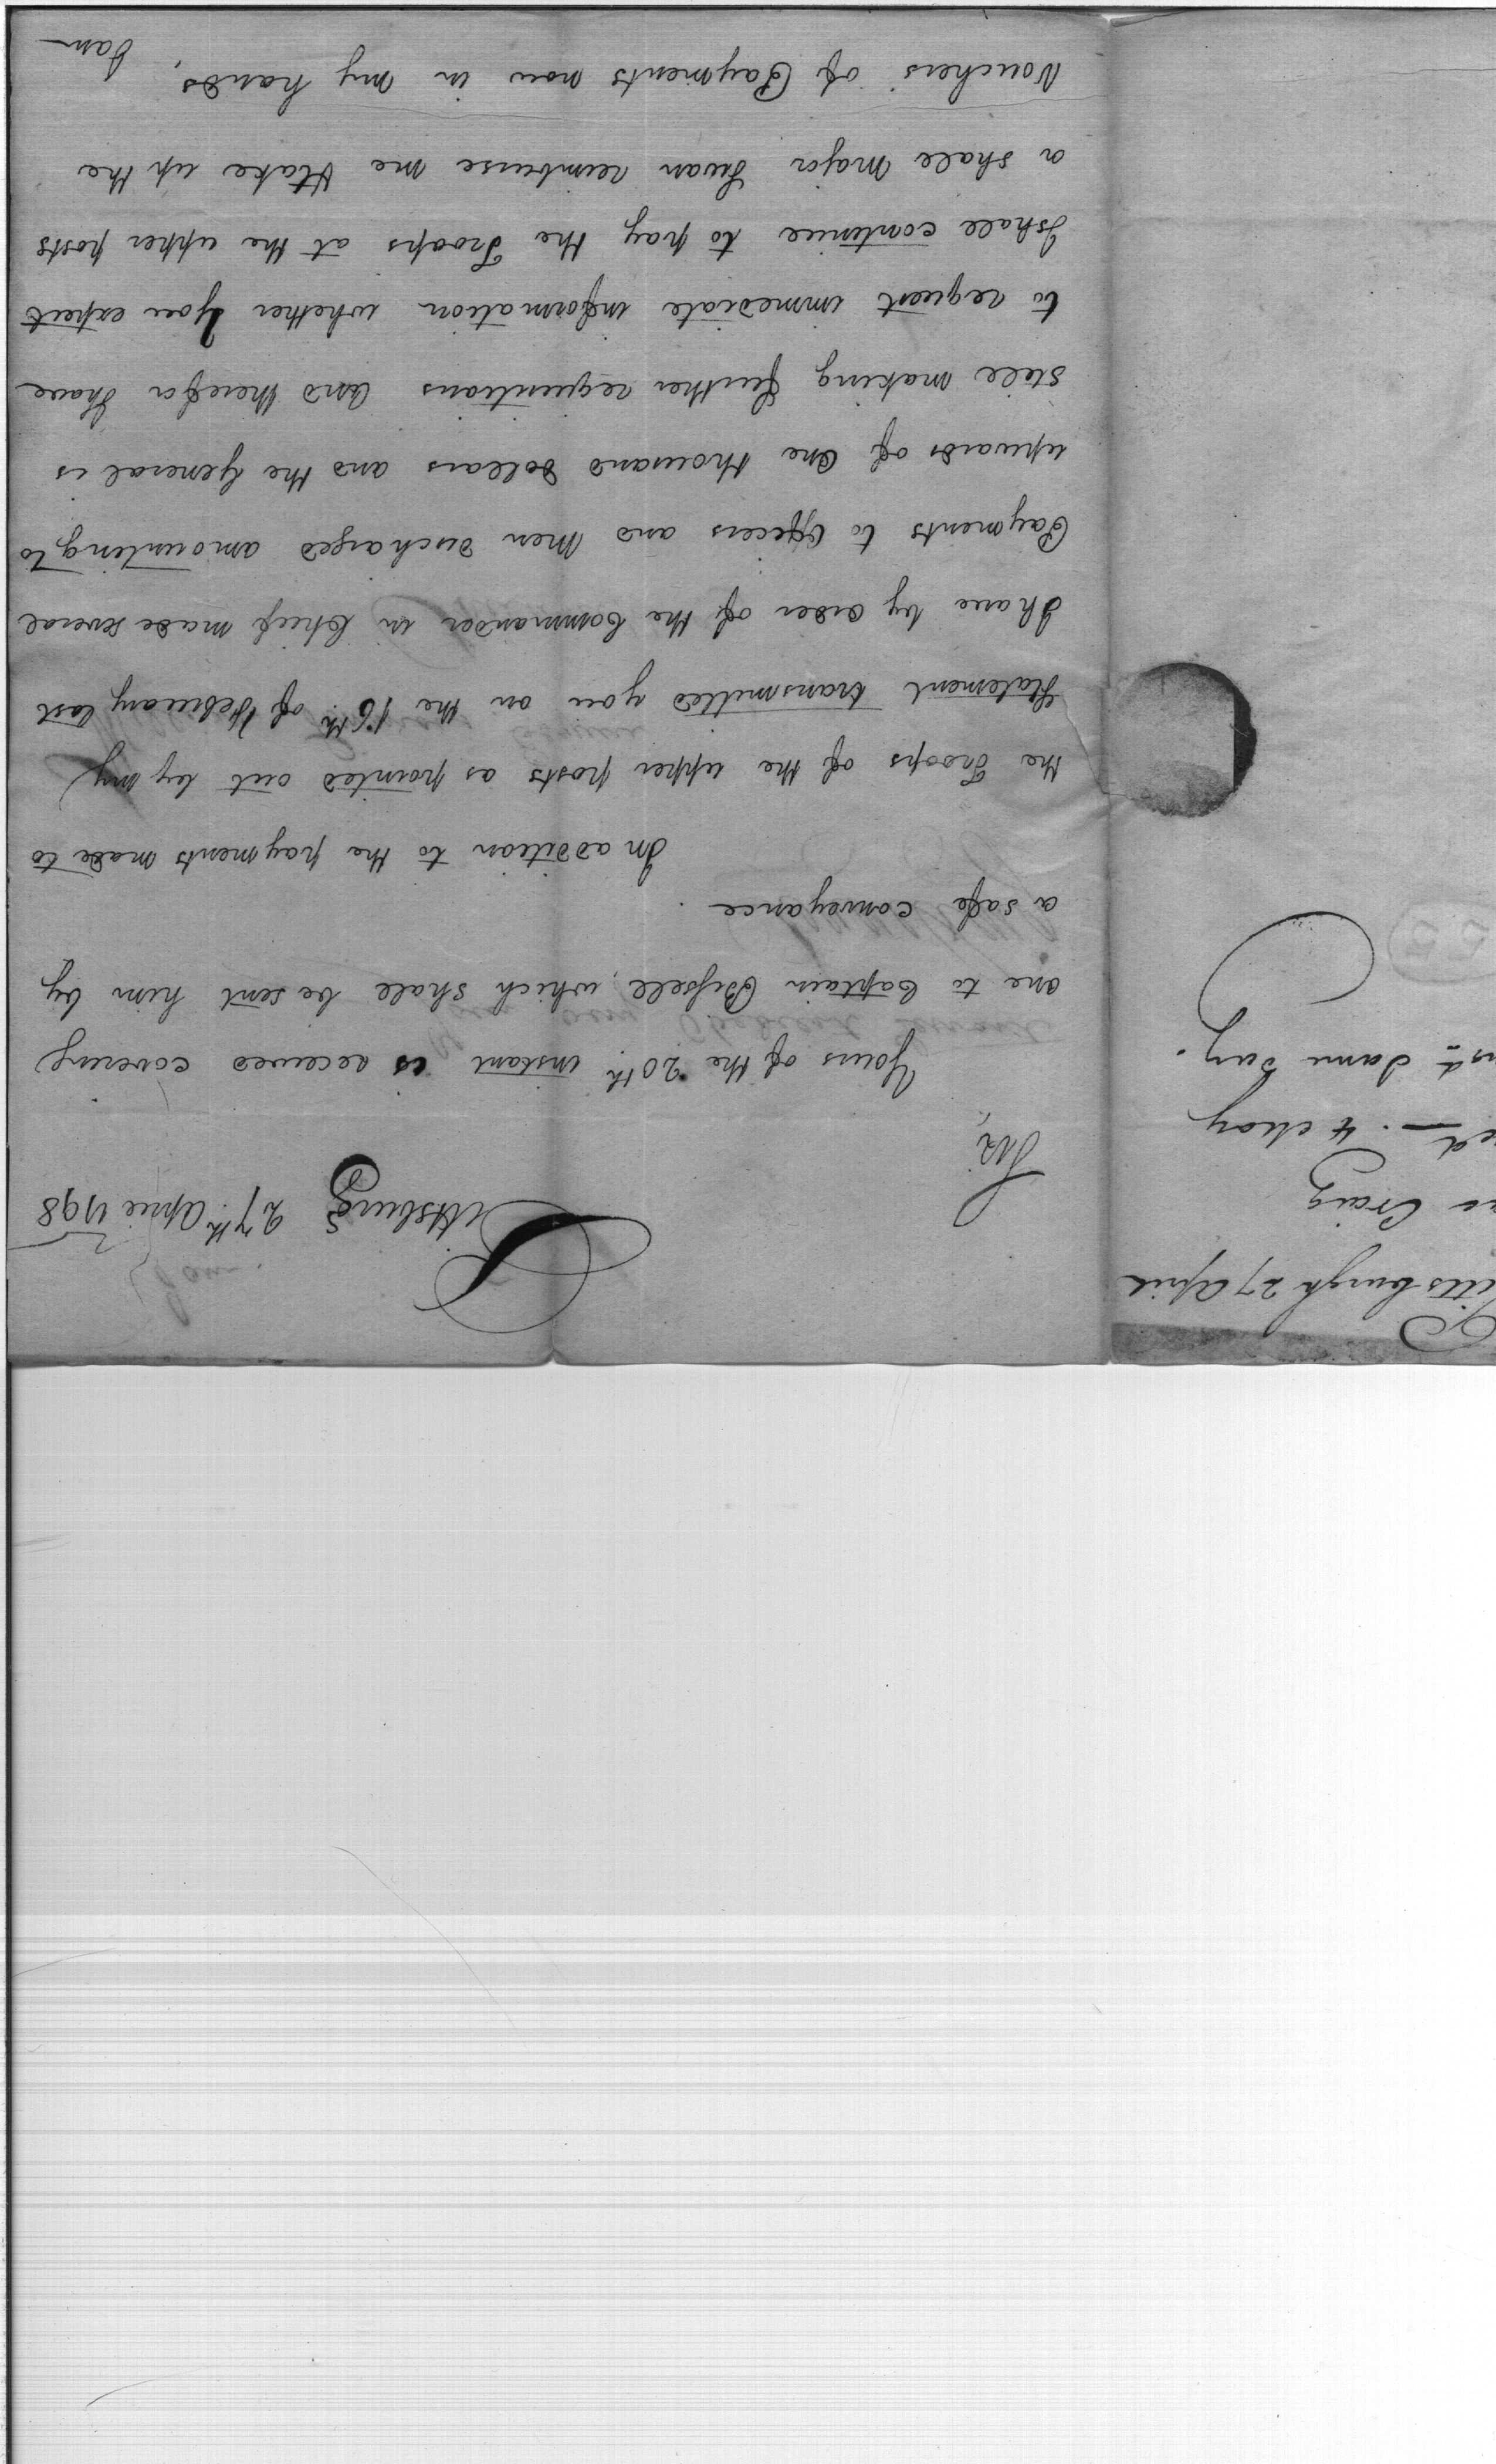 Pittsburg 27th April 1798
Sir,
Yours of the 20th instant is received covering
one to Captain Bissell, which shall be sent him by
a safe conveyance
In addition to the payments made to
the Troops of the upper posts as pointed out by my
Statement transmitted you on the 16th of February last
I have by order of the Commander in Chief made several
Payments to Officers and Men discharged amounting to
upwards of One thousand dollars and the General is
still making further requisitions and therefor I have
to request immediate information whether you expect
I shall continue to pay the Troops at the upper posts
or shall Major Swan reimburse me & take up the
Vouchers of Payments now in my hands,
I am
Pittsburgh 27 April
Craig
4 May
same day.
55